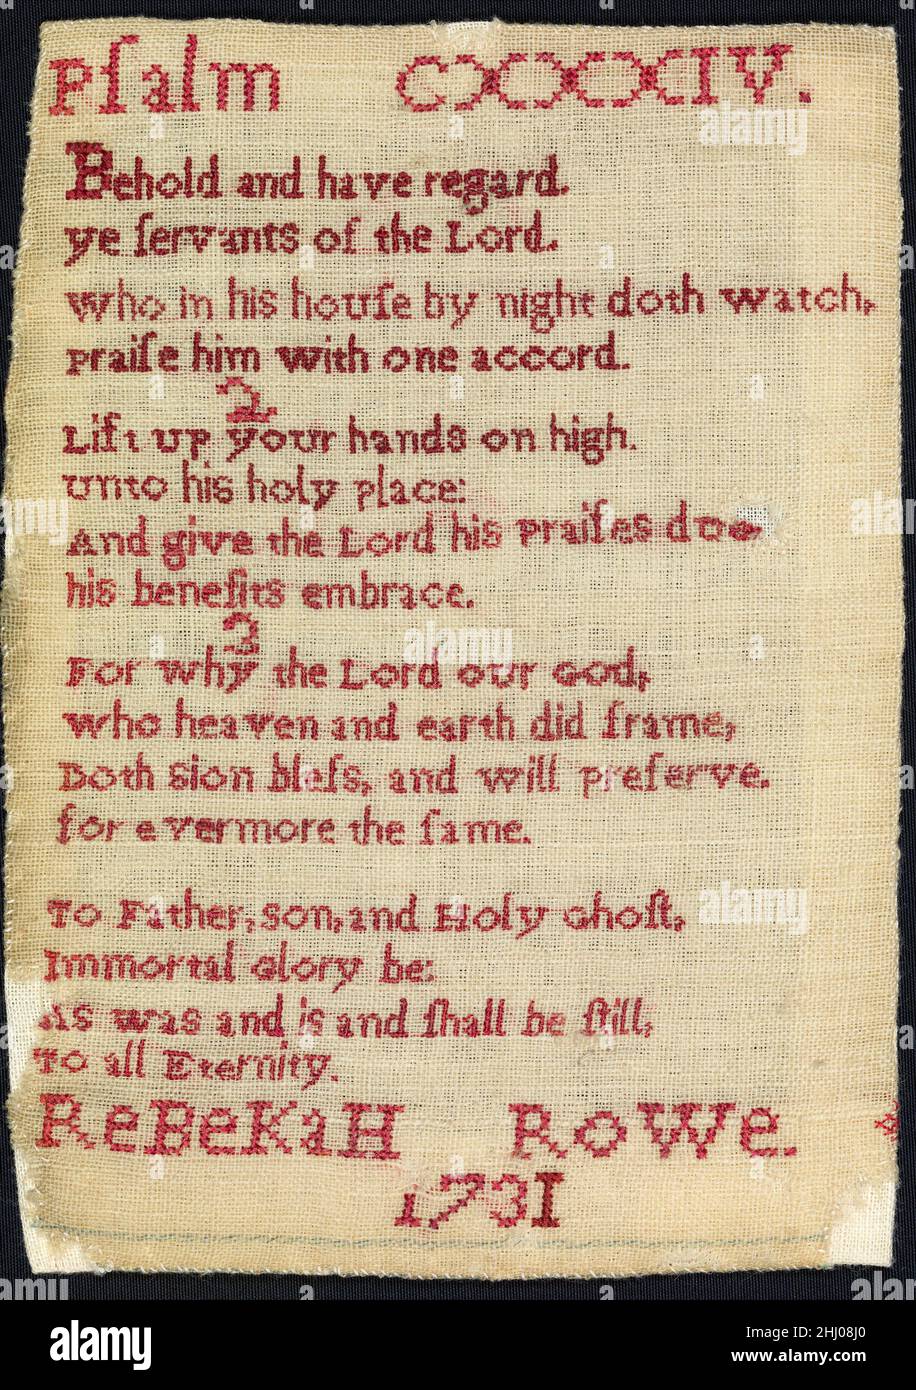 Pſalm CXXXXIV.
Behold and have regard.
ye ſervants of the Lord.
Who in his houſe by night doth watch,
Praiſe him with one accord.
2
Lift up your hands on high.
Unto his holy place:
And give the Lord his Praiſes due
his benefits embrace.
3
For why the Lord our God,
who heaven and earth did frame,
Doth Sion bleſs, and will preſerve.
for evermore the ſame.
To Father, Son, and Holy Ghoſt,
Immortal Glory be:
As was and is and ſhall be ſtill,
To all Eternity.
ReBeKaH RoWe.
1731
alamy
Image ID: 2HJ08J0
www.alamy.com